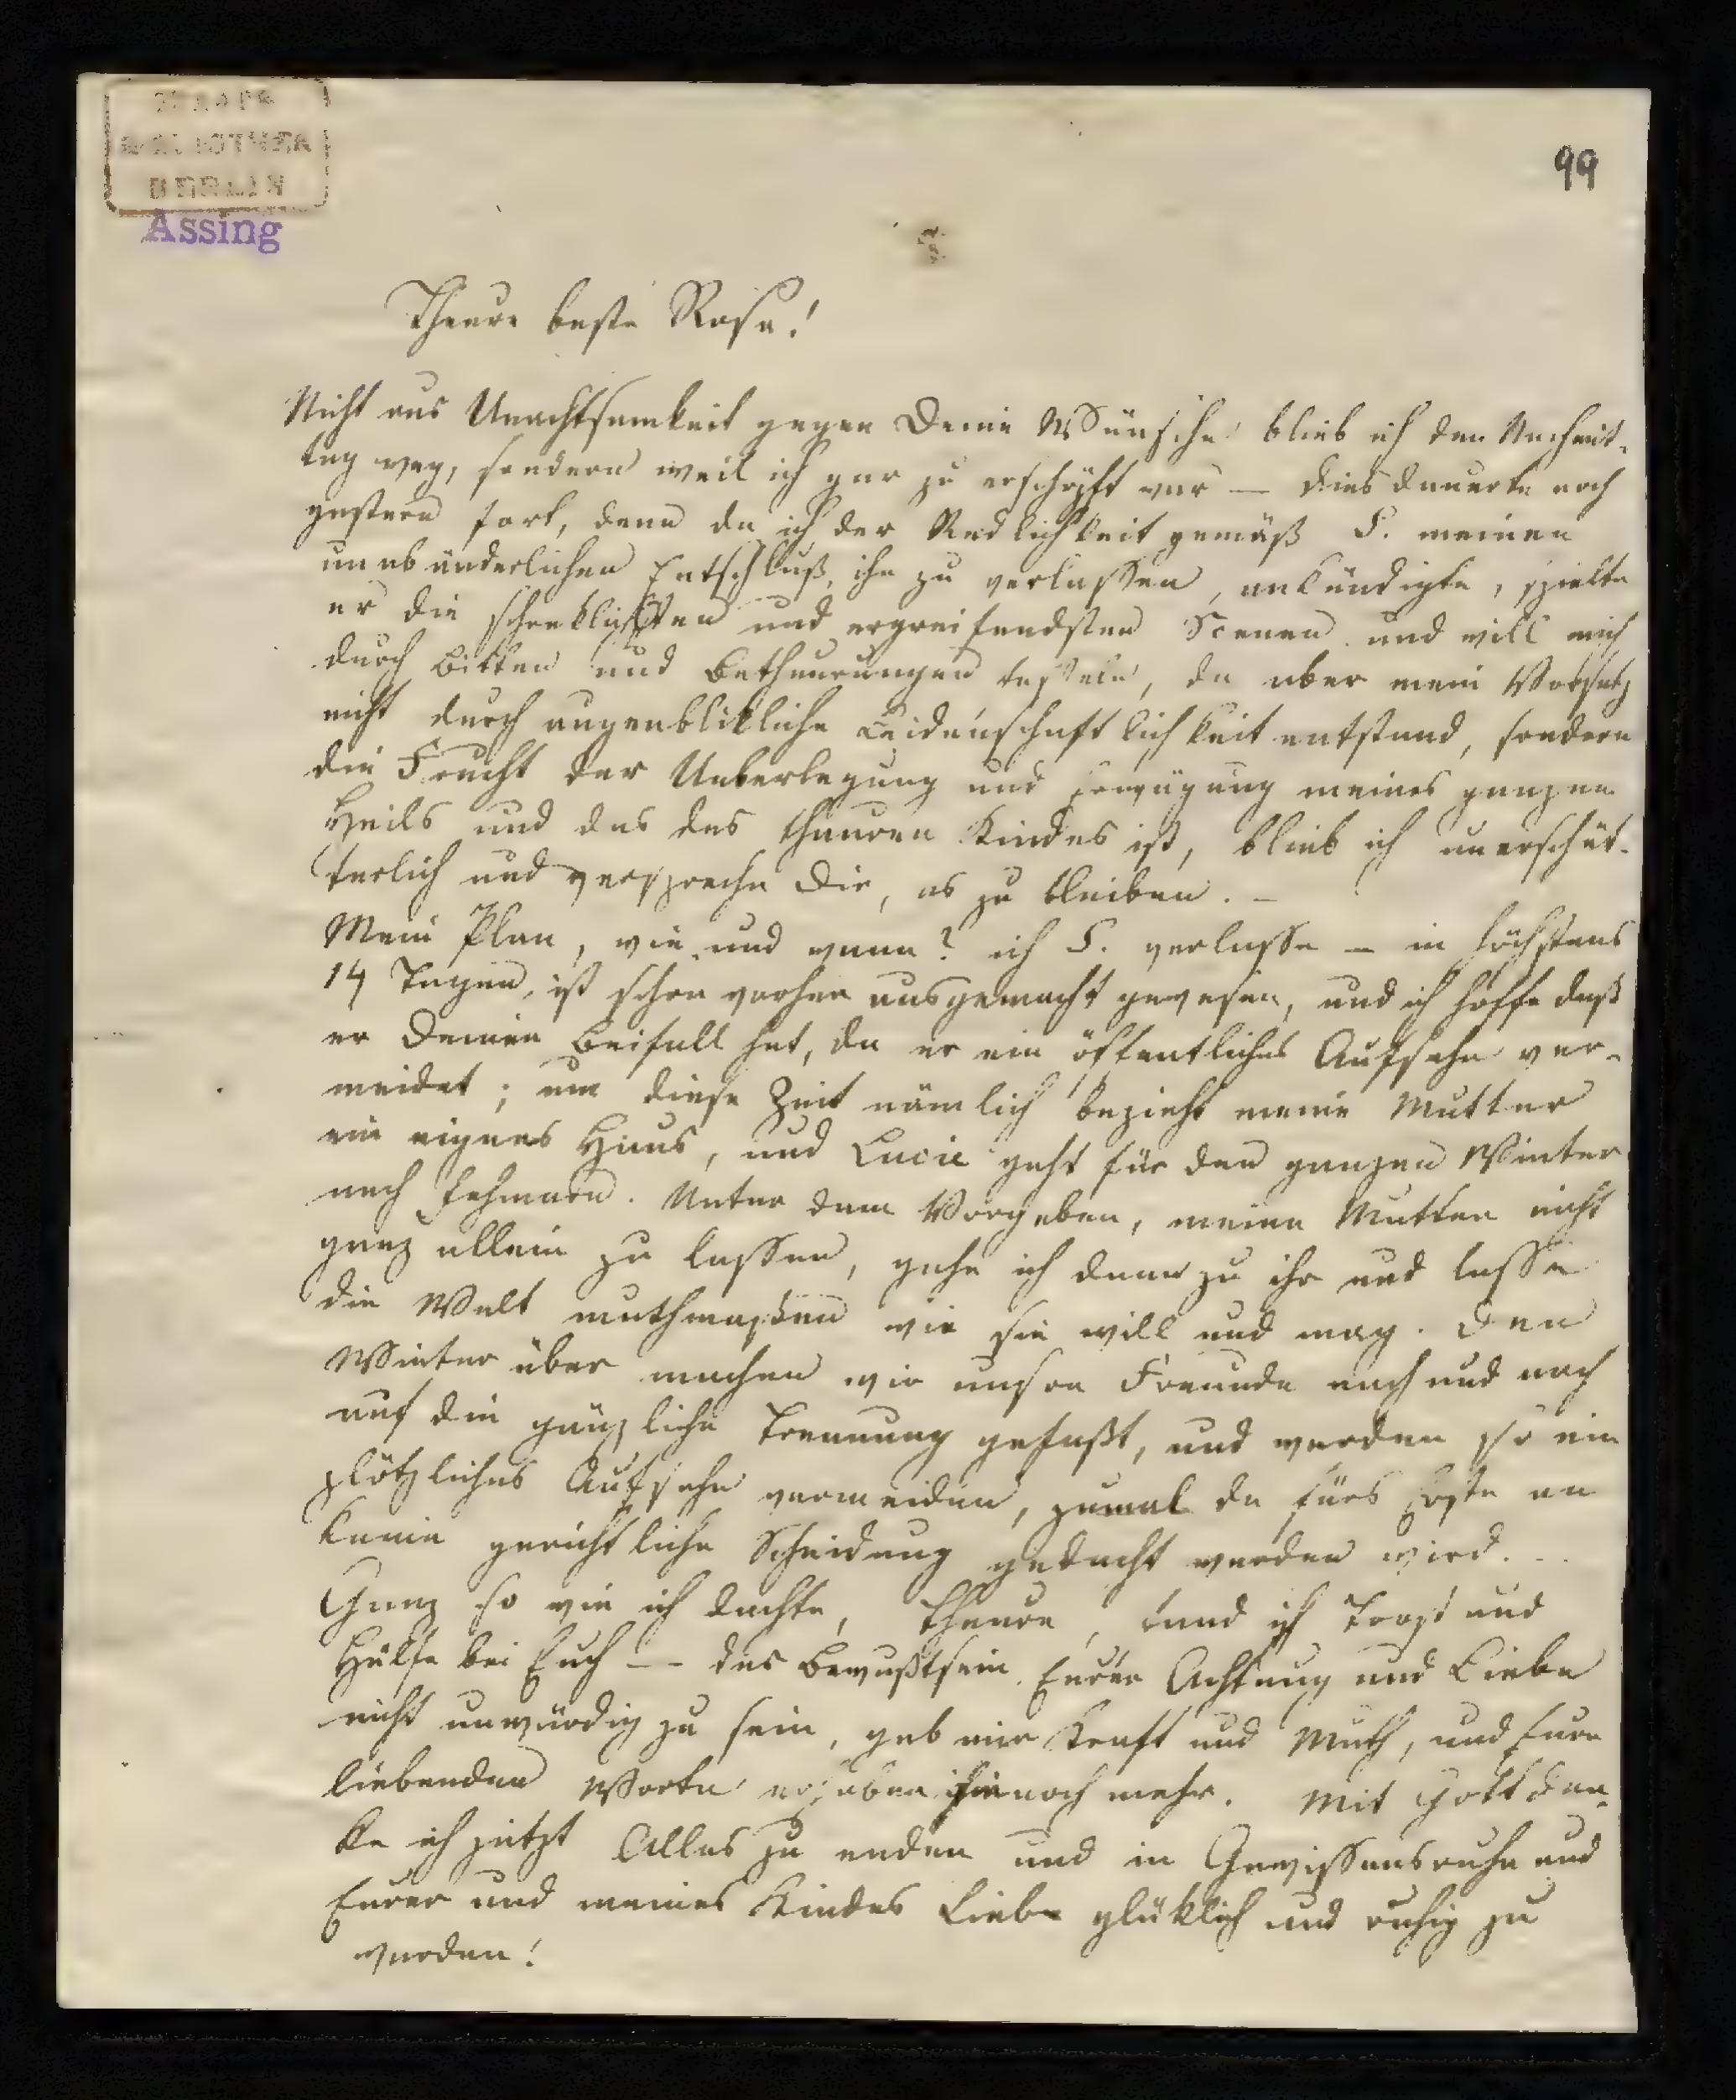 BERLIN
Assing
99
Theure beste Rosa!
Nicht aus Unachtsamkeit gegen Deine Wünsche blieb ich den Nachmit-
tag weg, sondern weil ich gar zu erschöpft war — dies dauerte noch
gestern fort, denn da ich der Redlichkeit gemäß F. meinen
unabänderlichen Entschluß, ihn zu verlassen, ankündigte, spielte
er die schreklichsten und ergreifendsten Scenen und will mich
durch Bitten und Betheurungen fesseln, da aber mein Vorsatz
nicht durch augenblikliche Leidenschaftlichkeit entstand, sondern
die Frucht der Ueberlegung und Erwägung meines ganzen
Heils und das des theuren Kindes ist, blieb ich unerschüt-
terlich und verspreche Dir, es zu bleiben. –
Mein Plan, wie und wann? ich F. verlasse – in höchstens
14 Tagen, ist schon vorher ausgemacht gewesen, und ich hoffe daß
er Deinen Beifall hat, da er ein öffentliches Aufsehn ver-
meidet; um diese Zeit nämlich bezieht meine Mutter
ein eignes Haus, und Lucie geht für den ganzen Winter
nach Fehmarn. Unter dem Vorgeben, meine Mutter nicht
ganz allein zu lassen, gehe ich dann zu ihr und lasse
die Welt muthmaßen wie sie will und mag. Den
Winter über machen wir unsre Freunde nach und nach
auf die gänzliche Trennung gefaßt, und werden so ein
plötzliches Aufsehn vermeiden, zumal da fürs Erste an
keine gerichtliche Scheidung gedacht werden wird. –
Ganz so wie ich dachte, Theure, fand ich Trost und
Hülfe bei Euch – – das Bewußtsein, Eurer Achtung und Liebe
nicht unwürdig zu sein, gab mir Kraft und Muth, und Eure
liebenden Worte noch mehr. Mit Gott den-
ke ich jetzt Alles zu enden und in Gewissensruhe und
Eurer und meines Kindes Liebe glüklich und ruhig zu
werden!